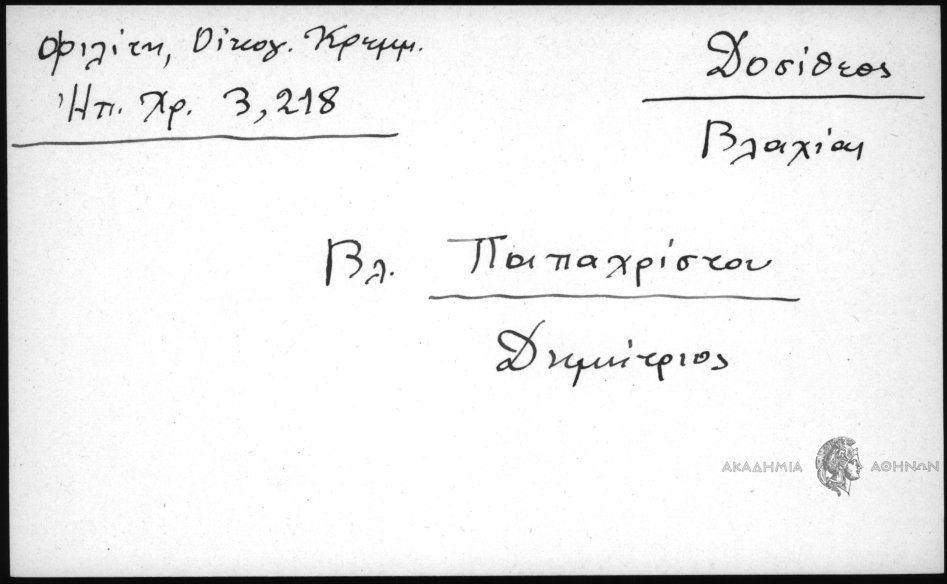 Φιλίτη, Οἰκογ. Κρεμμ.
Ἠπ. Χρ. 3,218
Δοσίθεος
Βλαχίας
Βλ. Παπαχρίστου
Δημήτριος
ΑΚΑΔΗΜΙΑ ΑΘΗΝΩΝ